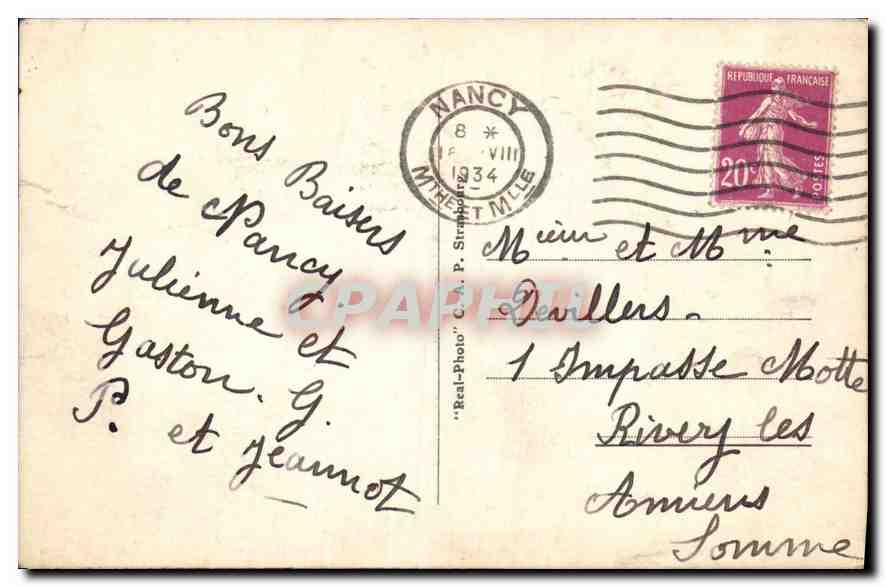 Bons Baisers
de Nancy.
Julienne et
Gaston. G.
P. et Jeannot
NANCY
8 *
VIII
1934
MTHE ET MLLE
REPUBLIQUE FRANÇAISE
20c
POSTES
"Real-Photo" C. A. P. Strasbourg
CPARAMA
Mr et Mme
Devillers
1 Impasse Motte
Rivery les
Amiens
Somme